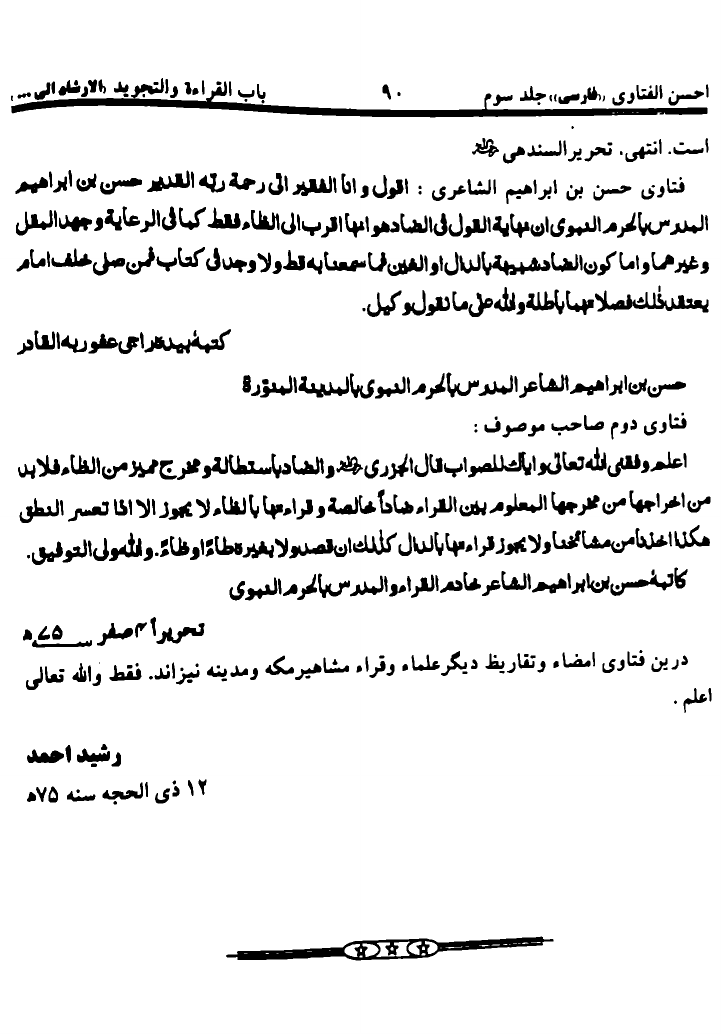 احسن الفتاوی ((فارسی)) جلد سوم ۹۰ باب القراءة والتجوید (الارشاد الی ...)
است. انتهی. تحریر السندهی ﷫
فتاوی حسن بن ابراهیم الشاعری : اقول و انا الفقیر الی رحمة ربه القدیر حسن بن ابراهیم
المدرس بالحرم النبوی ان نهایة القول فی الضاد هو انها اقرب الی الظاء فقط کما فی الرعایة و جهد المقل
و غیرهما و اما کون الضاد شبیهة بالدال او الغین فما سمعنا به قط ولا وجد فی کتاب فمن صلی خلف امام
یعتقد ذٰلک فصلاتهما باطلة والله علی ما نقول وکیل.
کتبهٔ بیده راجی عفو ربه القادر
حسن بن ابراهیم الشاعر المدرس بالحرم النبوی بالمدینة المنورة
فتاوی دوم صاحب موصوف :
اعلم وفقنی الله تعالی وایاک للصواب قال الجزری ﷫ والضاد باستطالة و مخرج ممیز من الظاء فلا بد
من اخراجها من مخرجها المعلوم بین القراء ضاداً خالصة و قراءتها بالظاء لا یجوز الا اذا تعسر النطق
هکذا اخذنا من مشائخنا ولا یجوز قراءتها بالدال کذٰلک ان قصد ولا بغیره طاءً او ظاءً. والله ولی التوفیق.
کاتبهٔ حسن بن ابراهیم الشاعر خادم القراء والمدرس بالحرم النبوی
تحریراً ۴ صفر ۷۵ ه
درین فتاوی امضاء وتقاریظ دیگر علماء وقراء مشاهیر مکه ومدینه نیزاند. فقط والله تعالی
اعلم .
رشید احمد
۱۲ ذی الحجه سنه ۷۵ه